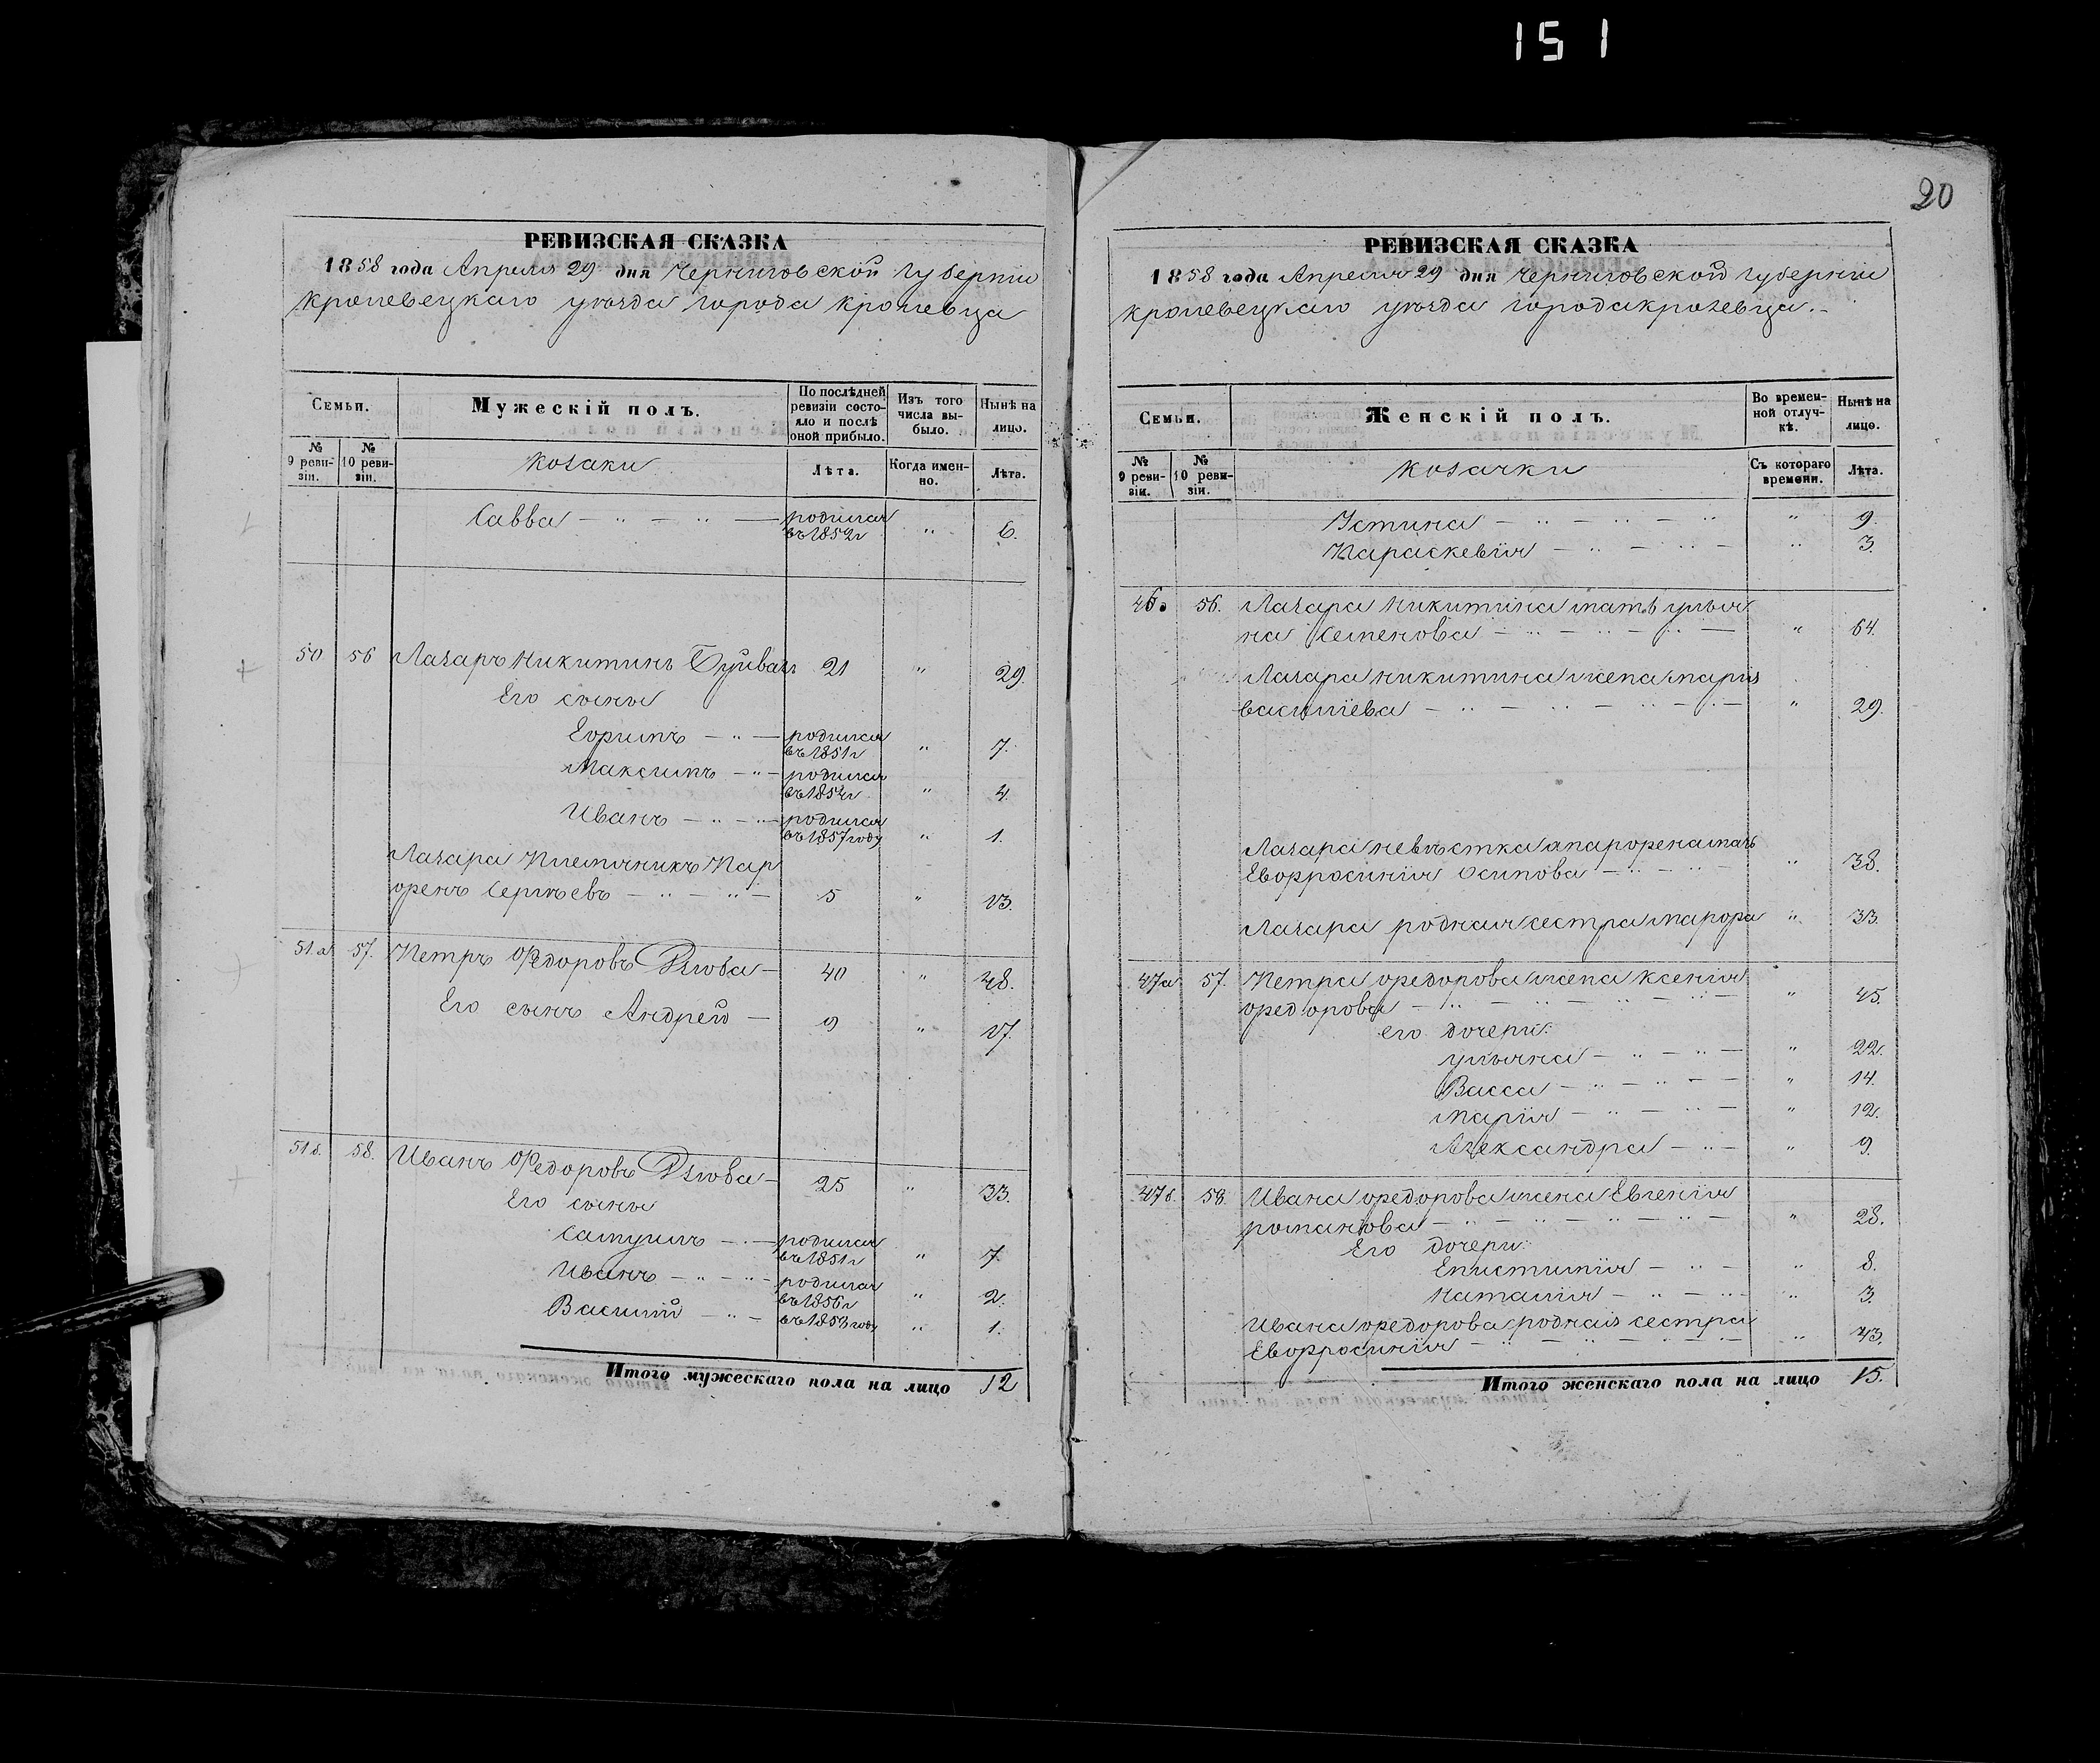 151
20
РЕВИЗСКАЯ СКАЗКА
1858 года Апреля 29 дня Черниговской губернии
кролевецкаго уѣзда города кролевца
Семьи.
Мужескій полъ.
По послѣдней ревизіи состояло и послѣ оной прибыло.
Изъ того числа выбыло.
Нынѣ на лицо.
№ 9 ревизіи.
№ 10 ревизіи.
козаки
Лѣта.
Когда именно.
Лѣта.
Савва — " — " — родился въ 1852 г " 6.
50 56 Лазарь Никитинъ 21 " 29.
Его сыны
Ефимъ — " — родился въ 1851 г " 7.
Максимъ — " — родился въ 1854 г " 4.
Иванъ — " — " — родился въ 1857 году " 1.
Лазаря племянникъ Пар
фенъ Сергѣевъ — " — " — 5 " 13.
51.а 57. Петръ Федоровъ Дзюба — 40 " 48.
Его сынъ Андрей — 9 " 17.
51 б. 58. Иванъ Федоровъ Дзюба — 25 " 33.
Его сыны
Самуилъ — " — родился въ 1851 г " 7.
Иванъ — " — " — родился въ 1856 г " 2.
Василий — " — въ 1858 году " 1.
Итого мужескаго пола на лицо 12
РЕВИЗСКАЯ СКАЗКА
1858 года Апреля 29 дня Черниговской губернии
кролевецкаго уѣзда города кролевца.-
Семьи.
Женскій полъ.
Во временной отлучкѣ.
Нынѣ на лицо.
№ 9 ревизіи.
№ 10 ревизіи.
козачки
Съ котораго времени.
Лѣта.
Устина — " — " — " " 9.
Параскевія — " — " — " 3.
46. 56. Лазаря Никитина мать улья
на Семенова — " — " — " — " 64.
Лазаря никитина жена марія
василіева — " — " — " — " 29.
Лазаря невѣстка а парфена мать
Евфросинія Осипова — " — " " 38.
Лазаря родная сестра марфа " 33.
47а 57. Петра федорова жена ксенія
федорова — " — " — " — " — " 45.
его дочери:
ульяна — " — " — " 22.
Васса — " — " — " 14.
марія — " — " — " 12.
Александра — " — " 9.
47 б. 58. Ивана федорова жена Евгенія
романова — " — " — " — " — " 28.
Его дочери:
Епистимія — " — " 8.
наталія — " — " — " 3.
Ивана федорова родная сестра
Евфросинія — " — " — " — " 43.
Итого женскаго пола на лицо 15.